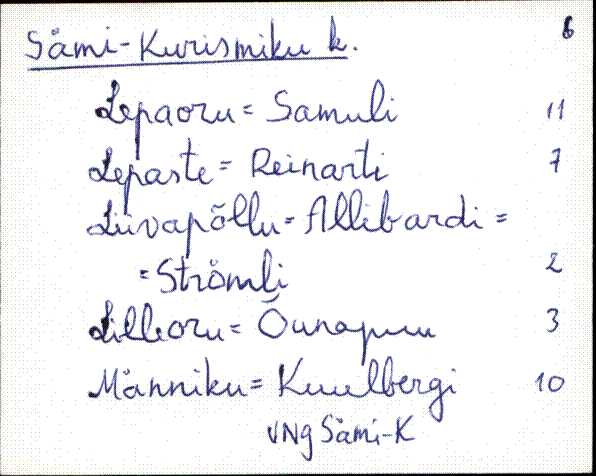 Sämi-Kurismiku k. 6
Lepaoru = Samuli 11
Lepaste = Reinarti 7
Liivapõllu = Allikardi =
= Strömli 2
Lilleoru = Õunapuu 3
Männiku = Kuulbergi 10
VNg Sämi-K